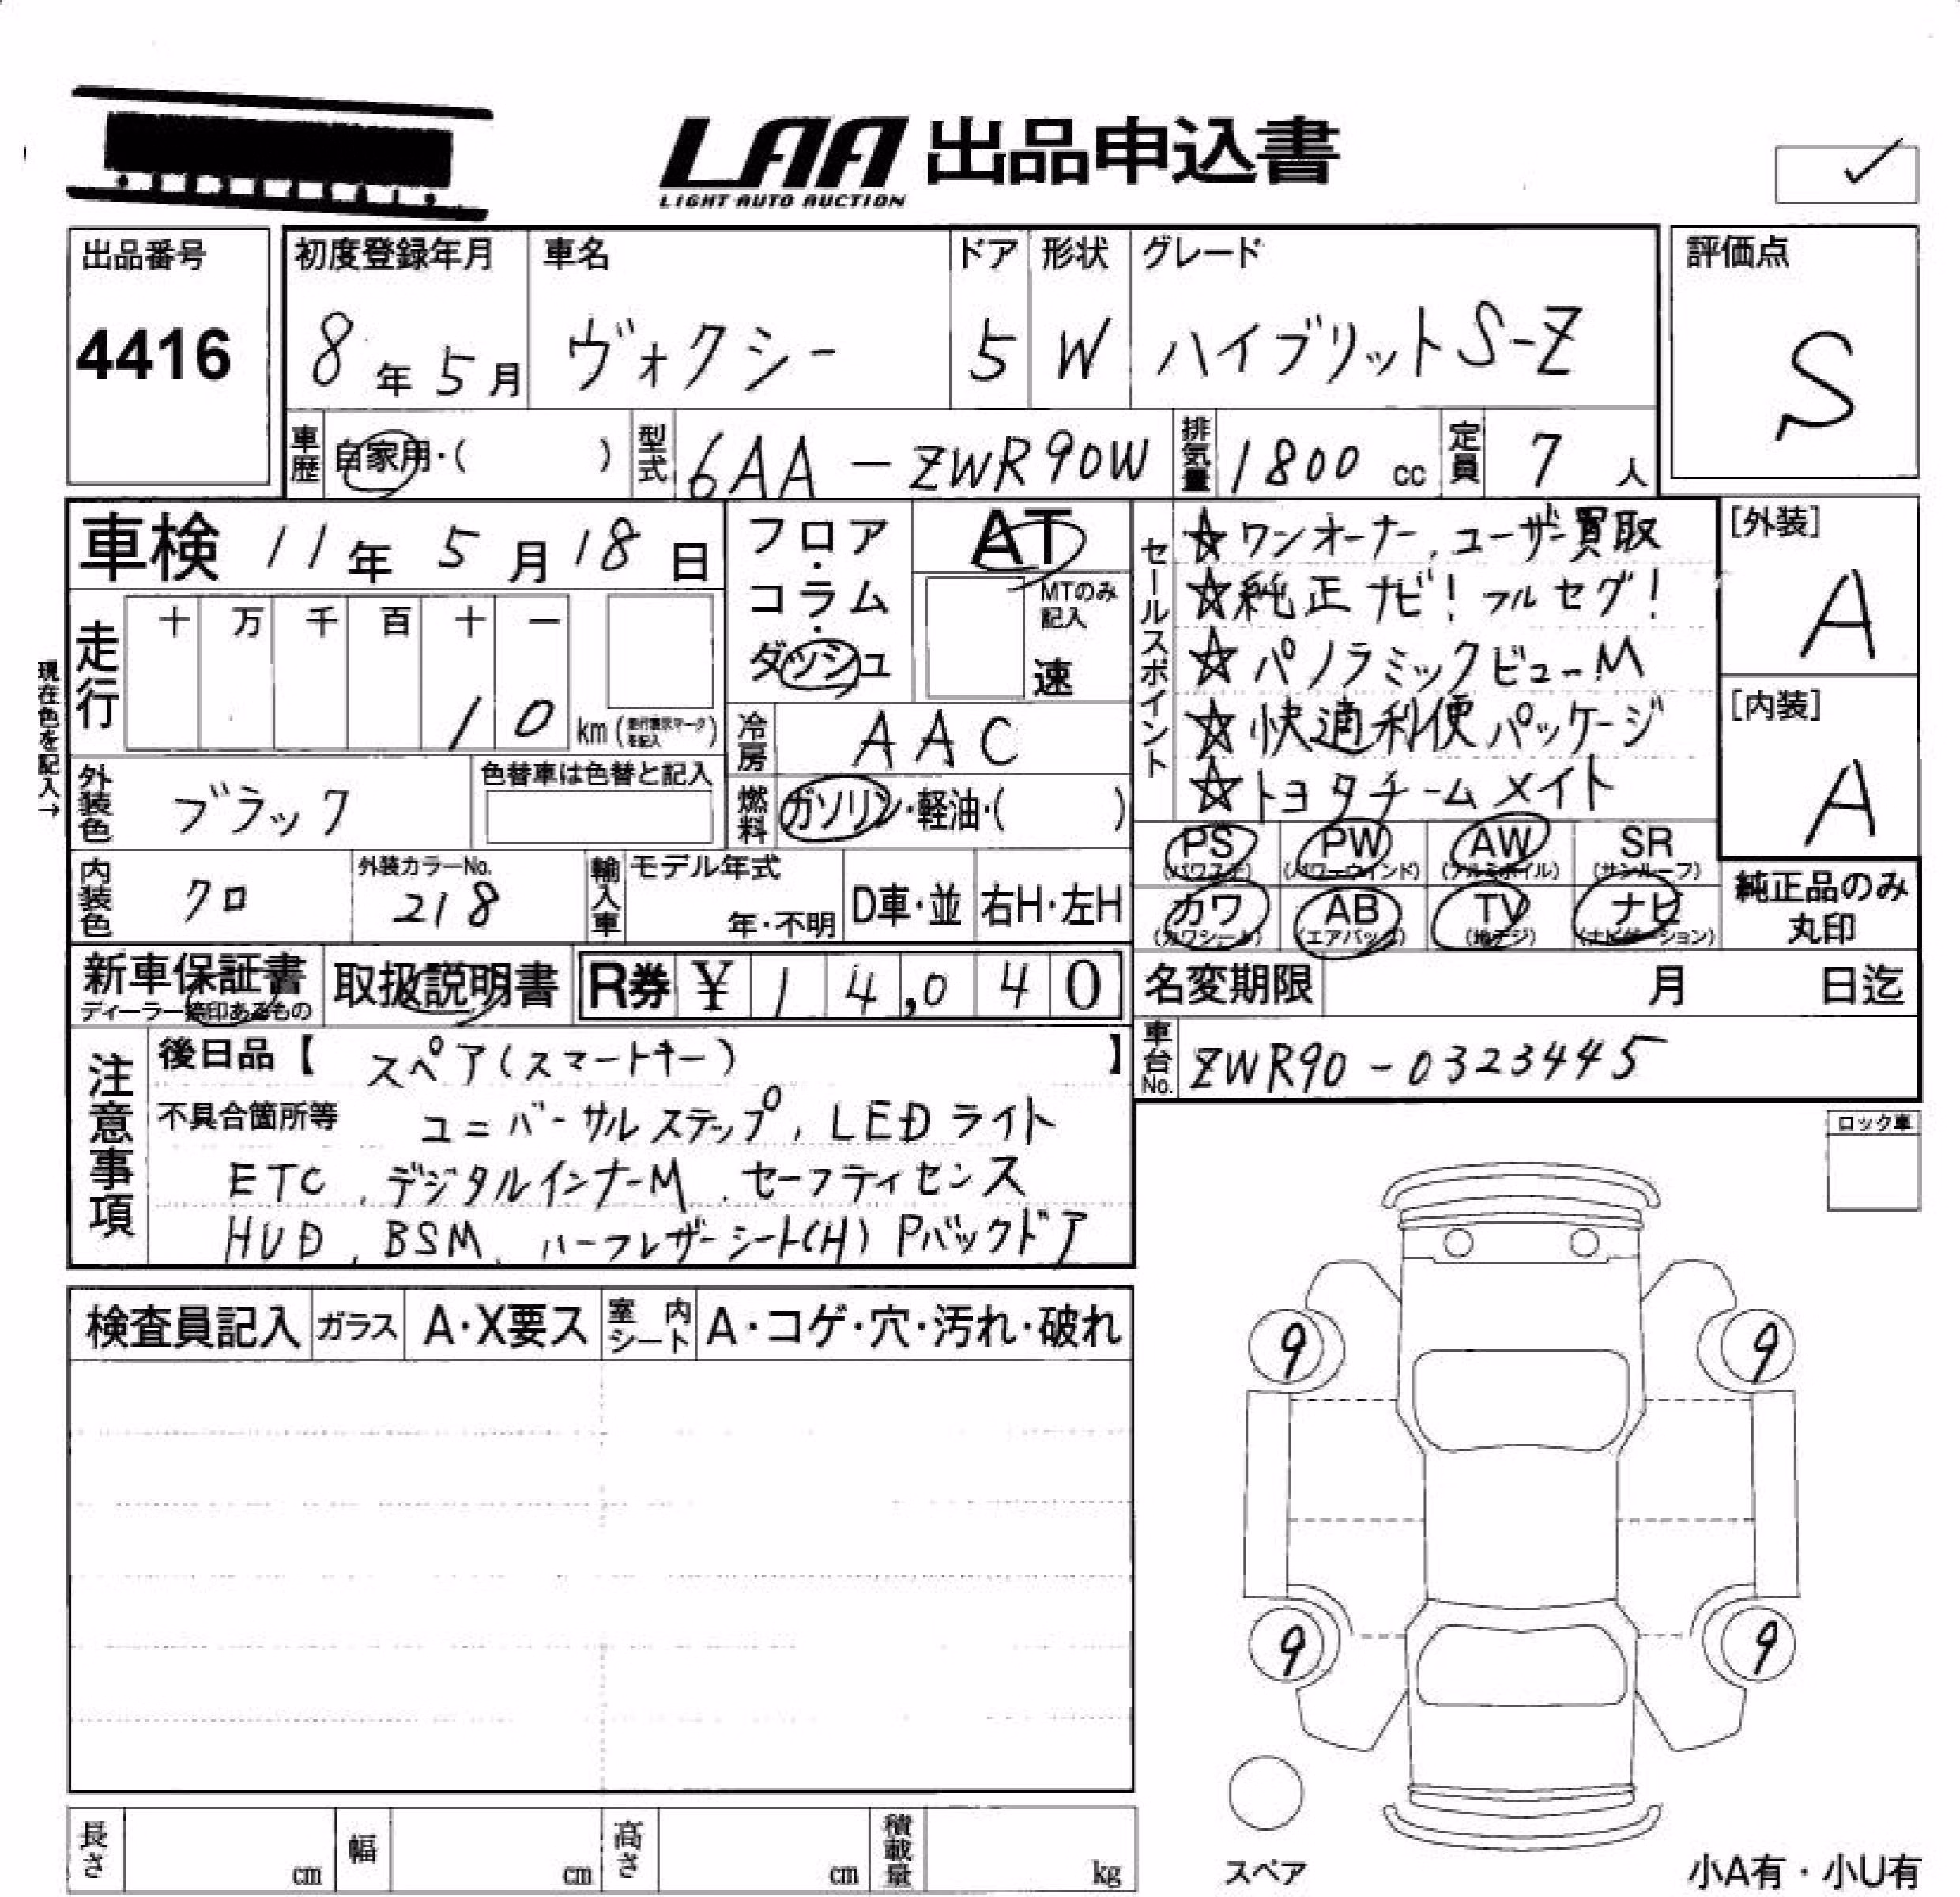 LAA 出品申込書
LIGHT AUTO AUCTION
出品番号
4416
初度登録年月
8年5月
車名
ヴォクシー
ドア
5
形状
W
グレード
ハイブリットS-Z
評価点
S
車歴 自家用・( )
型式 6AA-ZWR90W
排気量 1800 cc
定員 7 人
車検 11年5月18日
現在色を記入→
走行 十 万 千 百 十 一
10 km (走行表示マークを記入)
フロア・コラム・ダッシュ
AT
MTのみ記入
速
冷房 AAC
燃料 ガソリン・軽油・( )
外装色 ブラック
色替車は色替と記入
内装色 クロ
外装カラーNo.
218
輸入車 モデル年式
年・不明
D車・並
右H・左H
セールスポイント
☆ワンオーナー、ユーザー買取
☆純正ナビ!フルセグ!
☆パノラミックビューM
☆快適利便パッケージ
☆トヨタチームメイト
[外装]
A
[内装]
A
PS (パワステ)
PW (パワーウインド)
AW (アルミホイル)
SR (サンルーフ)
カワ (カワシート)
AB (エアバック)
TV (地デジ)
ナビ (ナビゲーション)
純正品のみ
丸印
新車保証書
ディーラー捺印あるもの
取扱説明書
R券 ¥14,040
名変期限 月 日迄
車台No. ZWR90-0323445
注意事項
後日品【 スペア(スマートキー) 】
不具合箇所等 ユニバーサルステップ, LEDライト
ETC, デジタルインナーM, セーフティセンス
HUD, BSM, ハーフレザーシート(H) Pバックドア
ロック車
検査員記入 ガラス A・X要ス 室内シート A・コゲ・穴・汚れ・破れ
9
9
9
9
スペア
小A有・小U有
長さ cm 幅 cm 高さ cm 積載量 kg